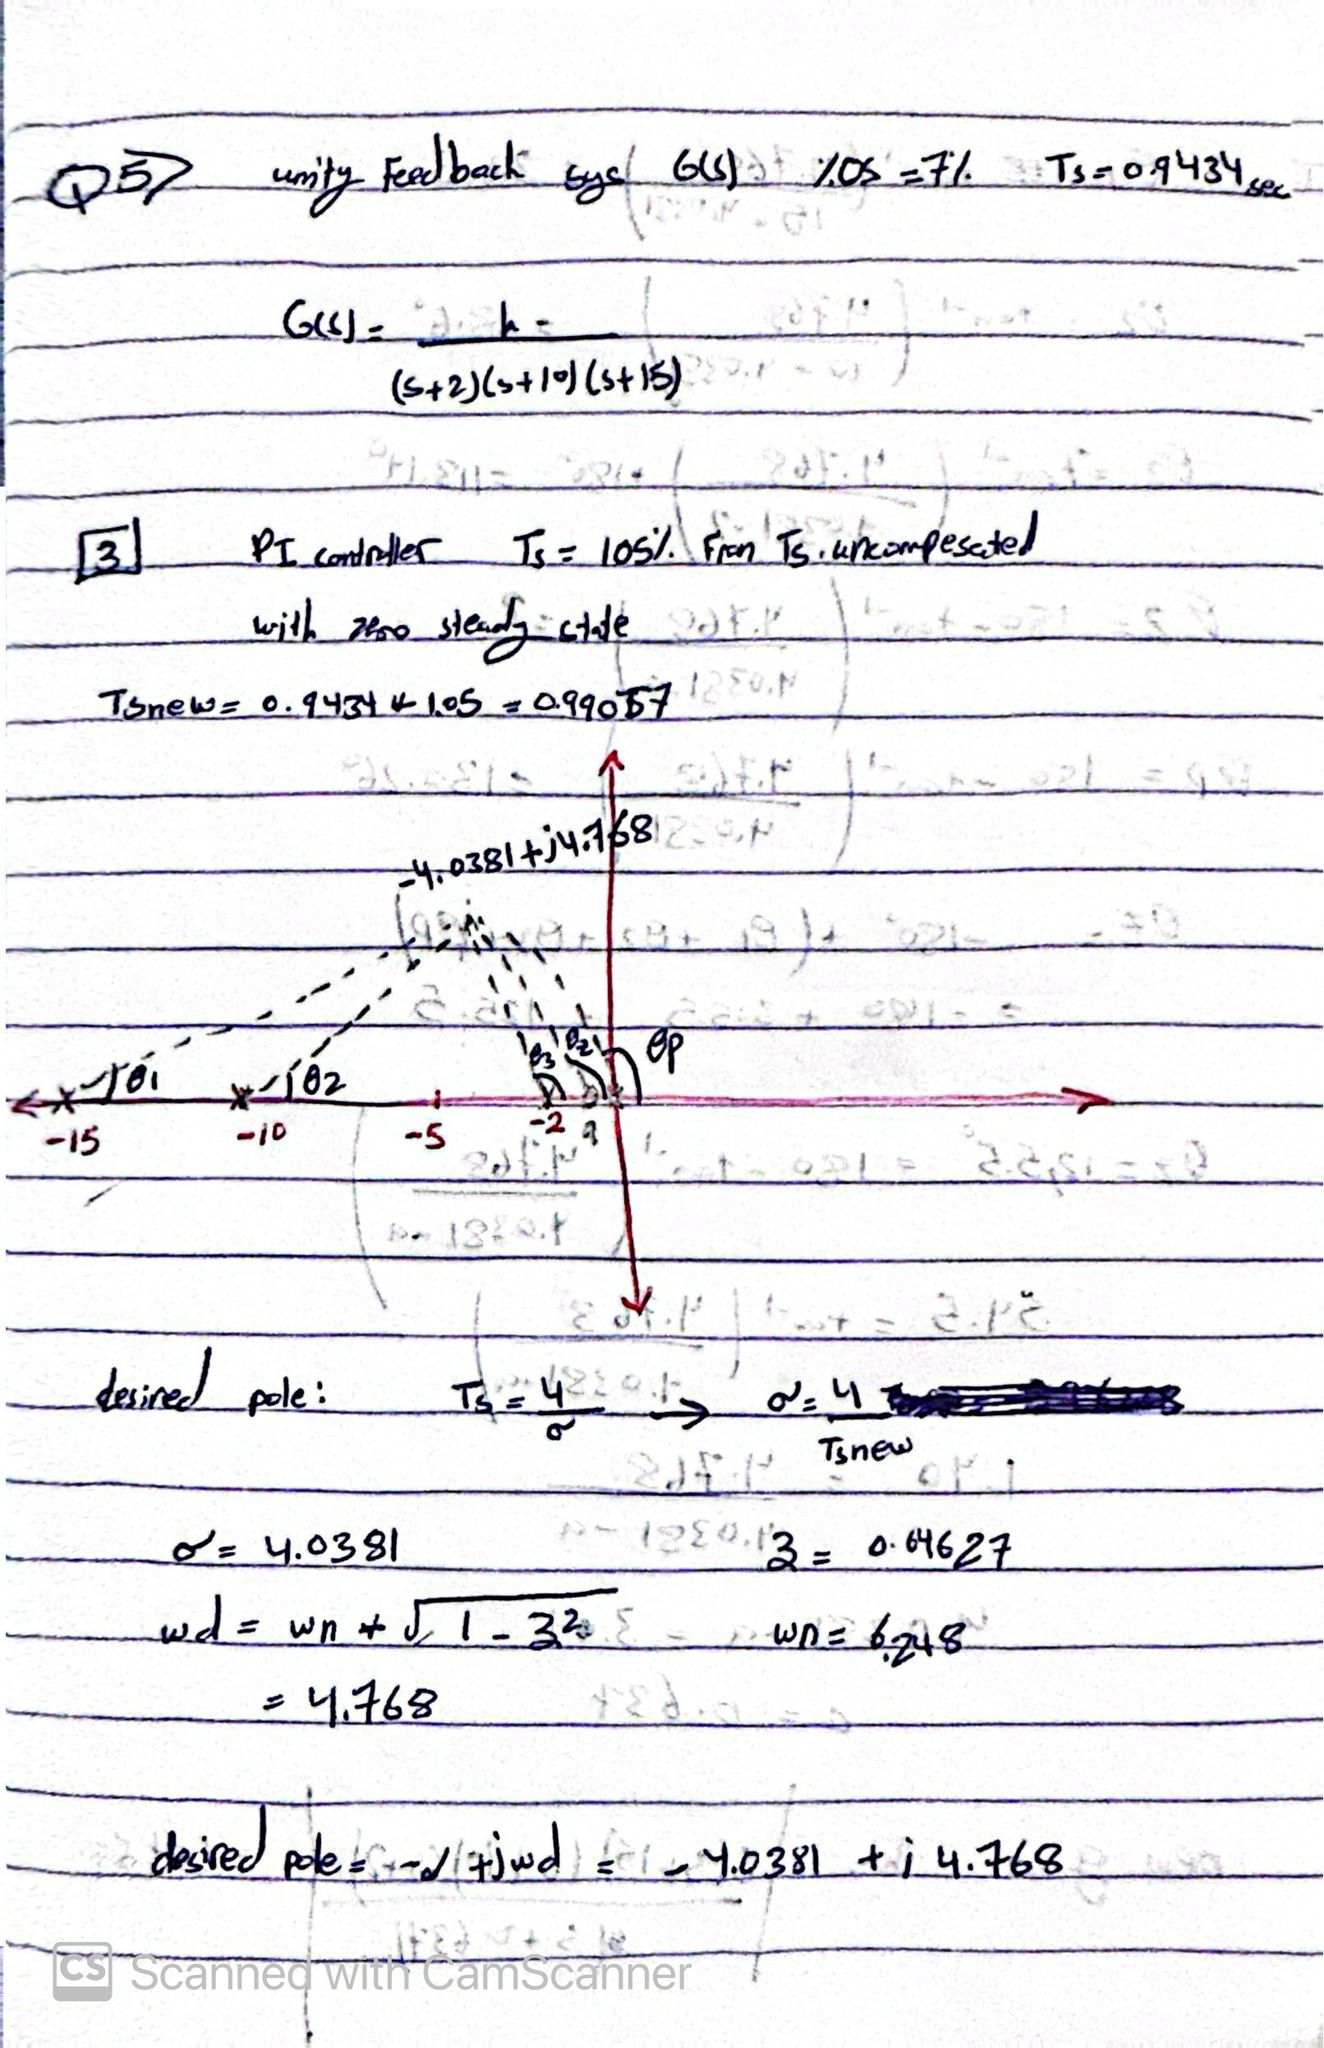 Q5> unity Feedback sys G(s) %OS = 7% Ts = 0.9434 sec
G(s) = k
(s+2)(s+10)(s+15)
3 PI controller Ts = 105% From Ts. uncompesated
with zero steady state
Tsnew = 0.9434 * 1.05 = 0.99057
-4.0381 + j4.768
θ1 θ2 θ3 θz θp
-15 -10 -5 -2 a
desired pole: Ts = 4/σ → σ = 4/Tsnew
σ = 4.0381 ζ = 0.64627
wd = wn * √1 - ζ² wn = 6.248
= 4.768
desired pole = -σ + jwd = -4.0381 + j 4.768
CS Scanned with CamScanner